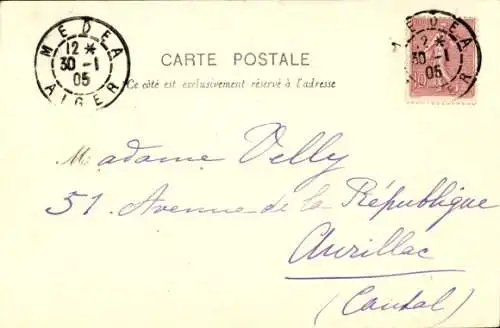 MEDEA
12 *
30 -1
05
ALGER
MEDEA
12 *
30 -1
05
10
CARTE POSTALE
Ce côté est exclusivement réservé à l'adresse
Madame Velly
51 Avenue de la République
Aurillac
(Cantal)